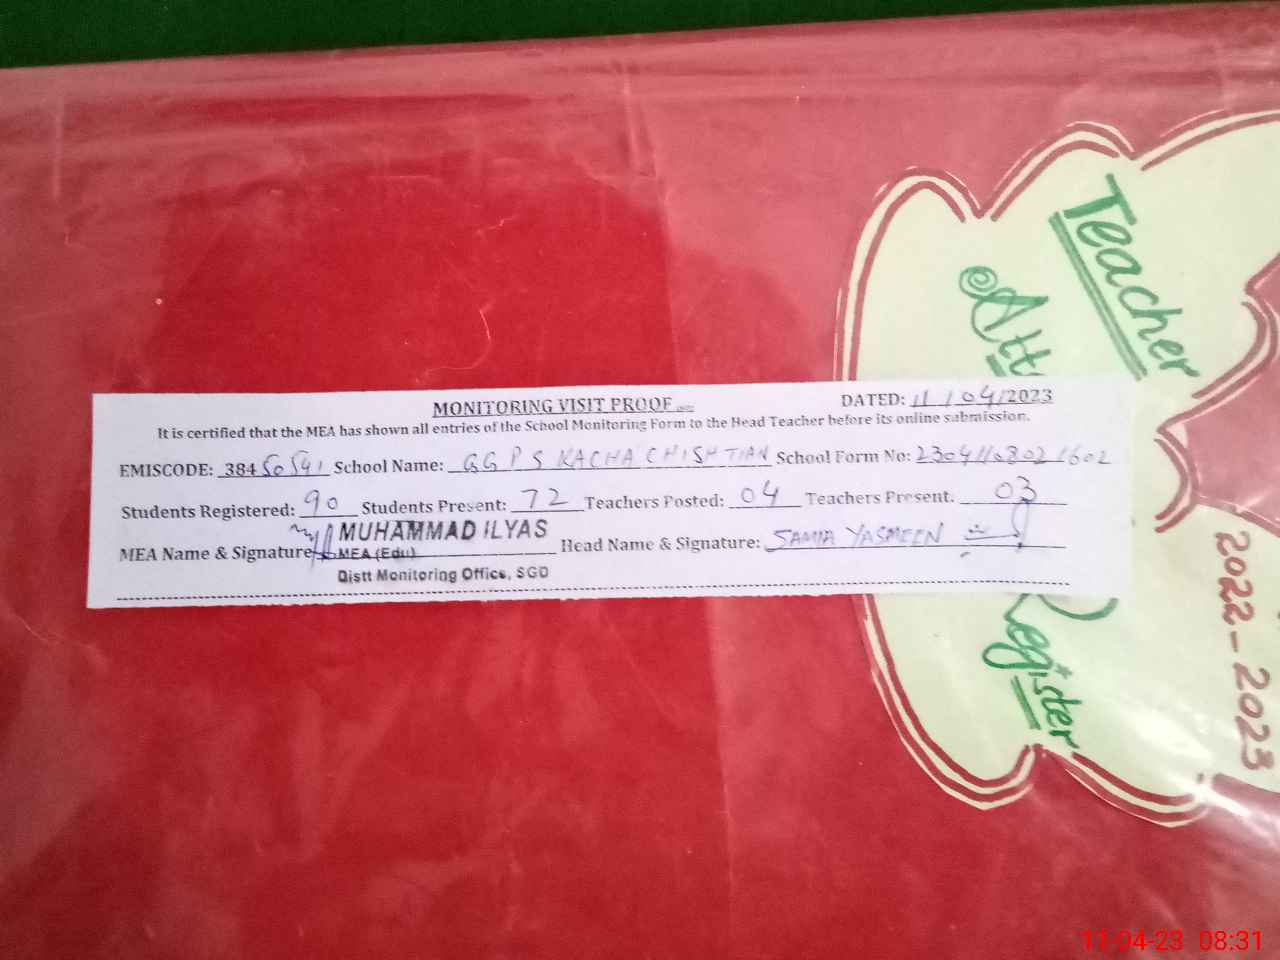 MONITORING VISIT PROOF
DATED: 11/04/2023
It is certified that the MEA has shown all entries of the School Monitoring Form to the Head Teacher before its online submission.
EMISCODE: 38450541 School Name: GGPS KACHA CHISHTIAN School Form No: 23041108021602
Students Registered: 90 Students Present: 72 Teachers Posted: 04 Teachers Present: 03
MEA Name & Signature MUHAMMAD ILYAS Head Name & Signature: SAMIA YASMEEN
MEA (Edu)
Distt Monitoring Office, SGD
Teacher
Att
Register
2022-2023
11-04-23 08:31